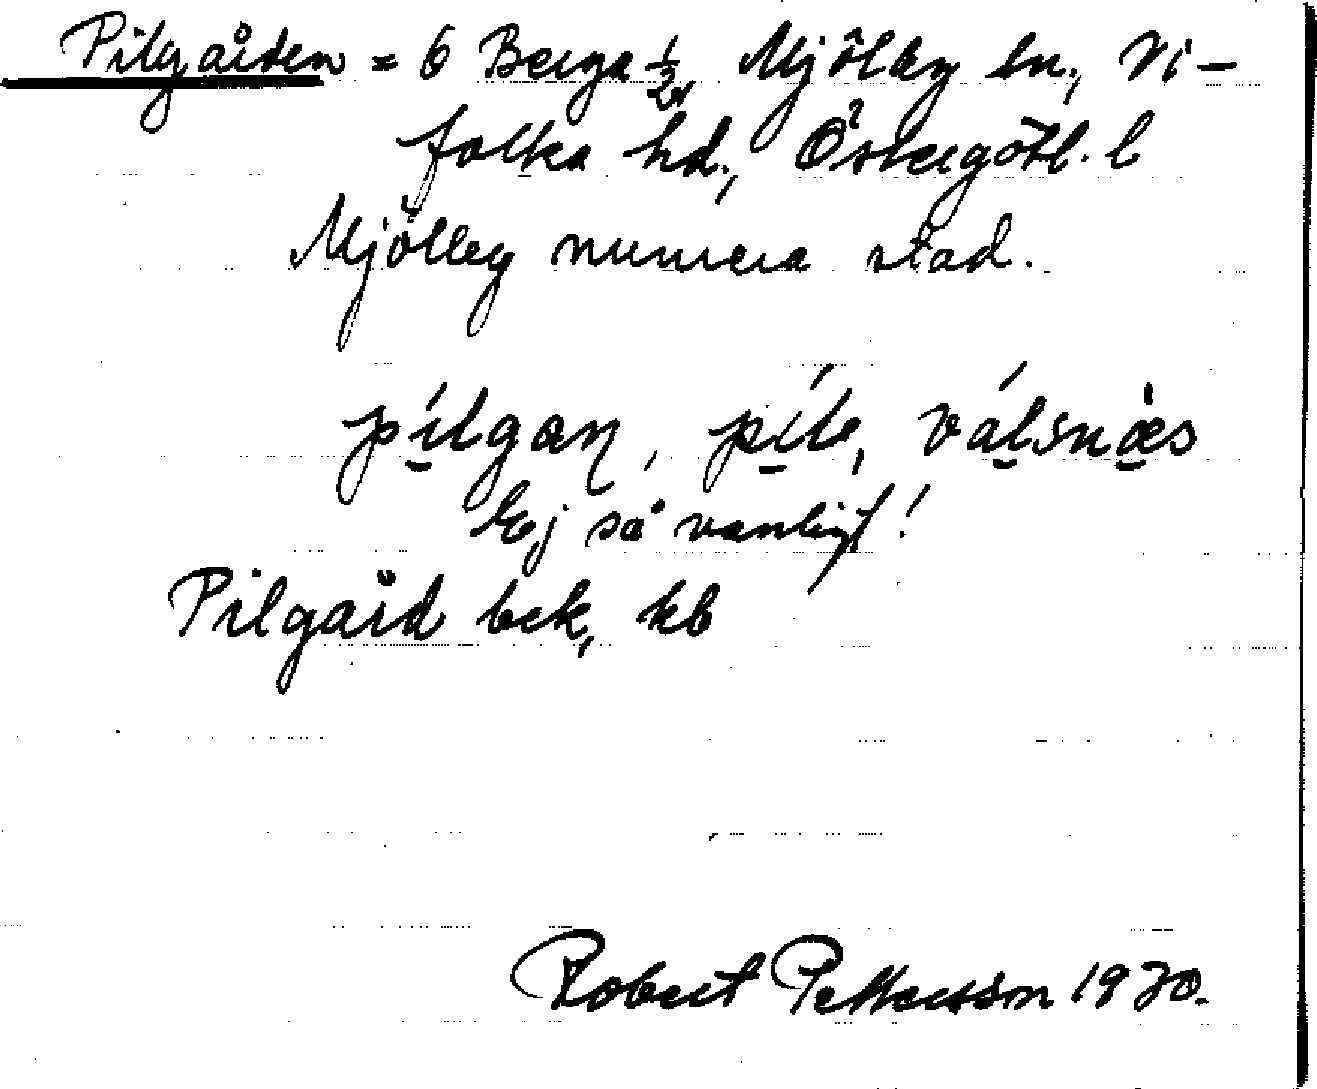 Pilgården = 6 Berga ½, Mjölby ln, Vi-
folka hd., Östergötl. l
Mjölby numera stad.
pílgaɳ, píle, válsnæs
Ej så vanligt!
Pilgård bek, kb
Robert Pettersson 1970.